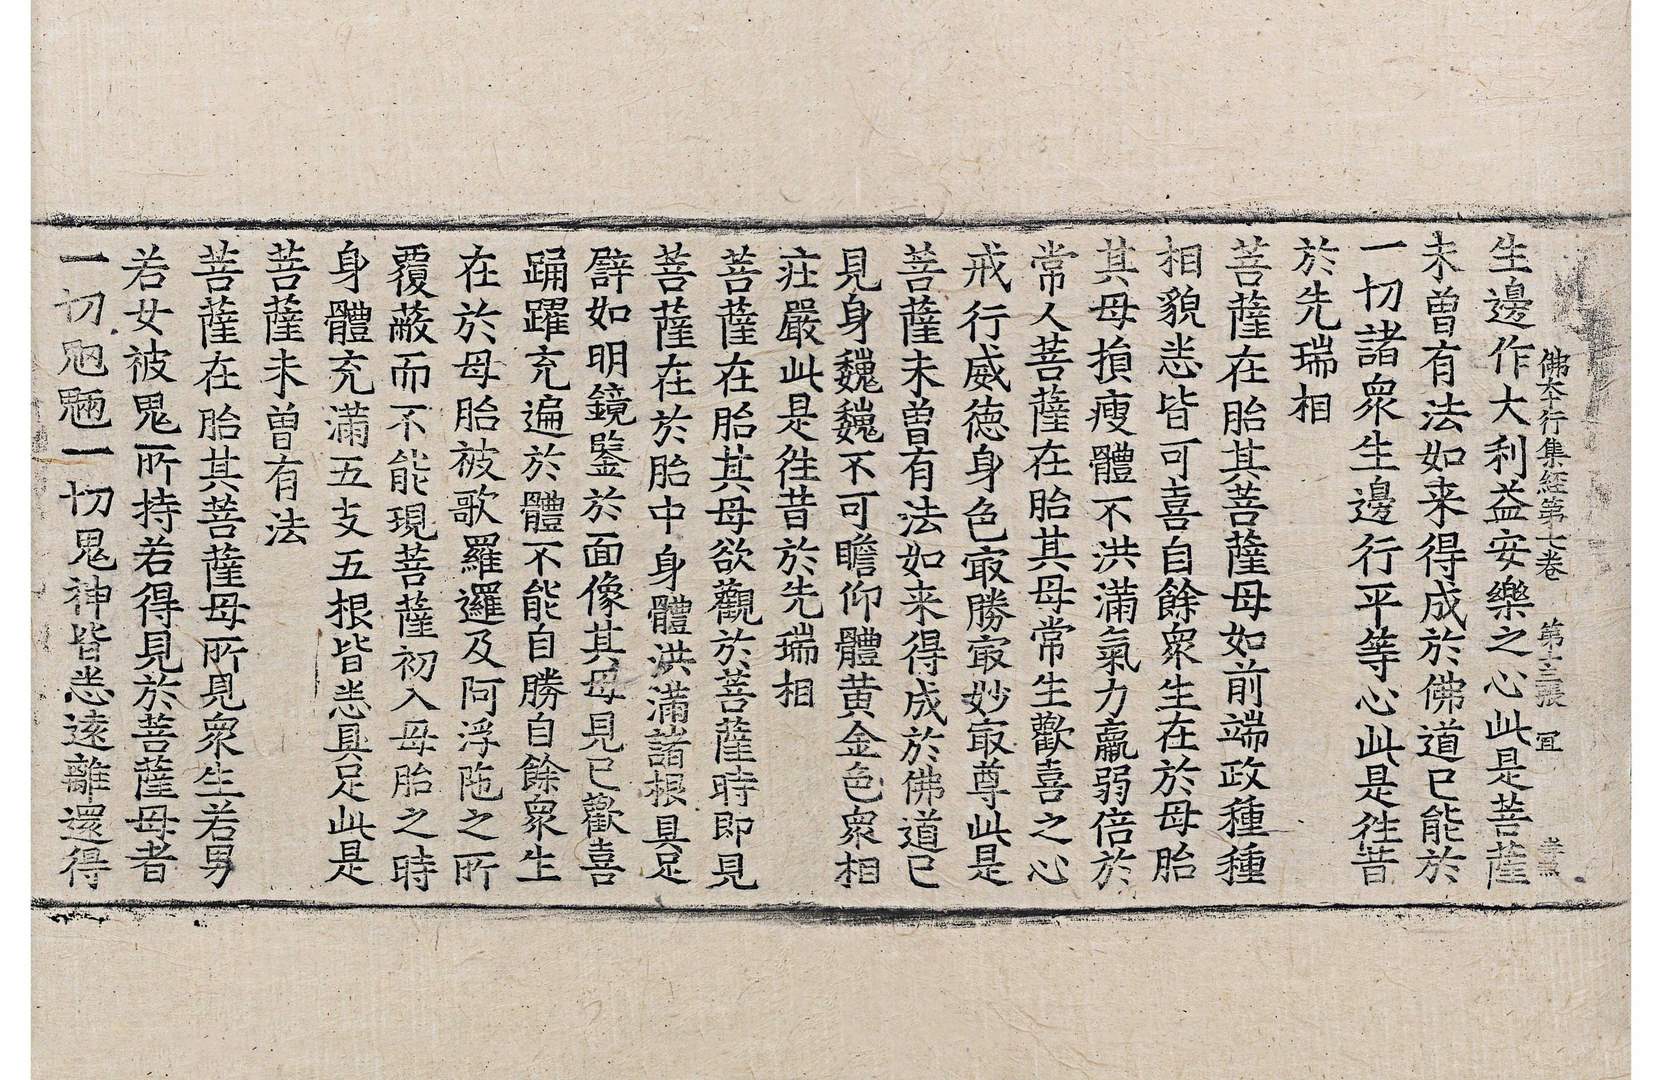 佛本行集經第七卷 第十三張 冝
生邊作大利益安樂之心此是菩薩
未曽有法如来得成於佛道已能於
一切諸衆生邊行平等心此是徃昔
於先瑞相
菩薩在胎其菩薩母如前端政種種
相貌悉皆可喜自餘衆生在於母胎
其母損瘦體不洪滿氣力羸弱倍於
常人菩薩在胎其母常生歡喜之心
戒行威德身色㝡勝㝡妙㝡尊此是
菩薩未曽有法如来得成於佛道已
見身巍巍不可瞻仰體黄金色衆相
莊嚴此是徃昔於先瑞相
菩薩在胎其母欲觀於菩薩時即見
菩薩在於胎中身體洪滿諸根具足
譬如明鏡鑒於面像其母見已歡喜
踊躍充遍於體不能自勝自餘衆生
在於母胎被歌羅邏及阿浮陁之所
覆蔽而不能現菩薩初入母胎之時
身體充滿五支五根皆悉具足此是
菩薩未曽有法
菩薩在胎其菩薩母所見衆生若男
若女被鬼所持若得見於菩薩母者
一切魍魎一切鬼神皆悉遠離還得